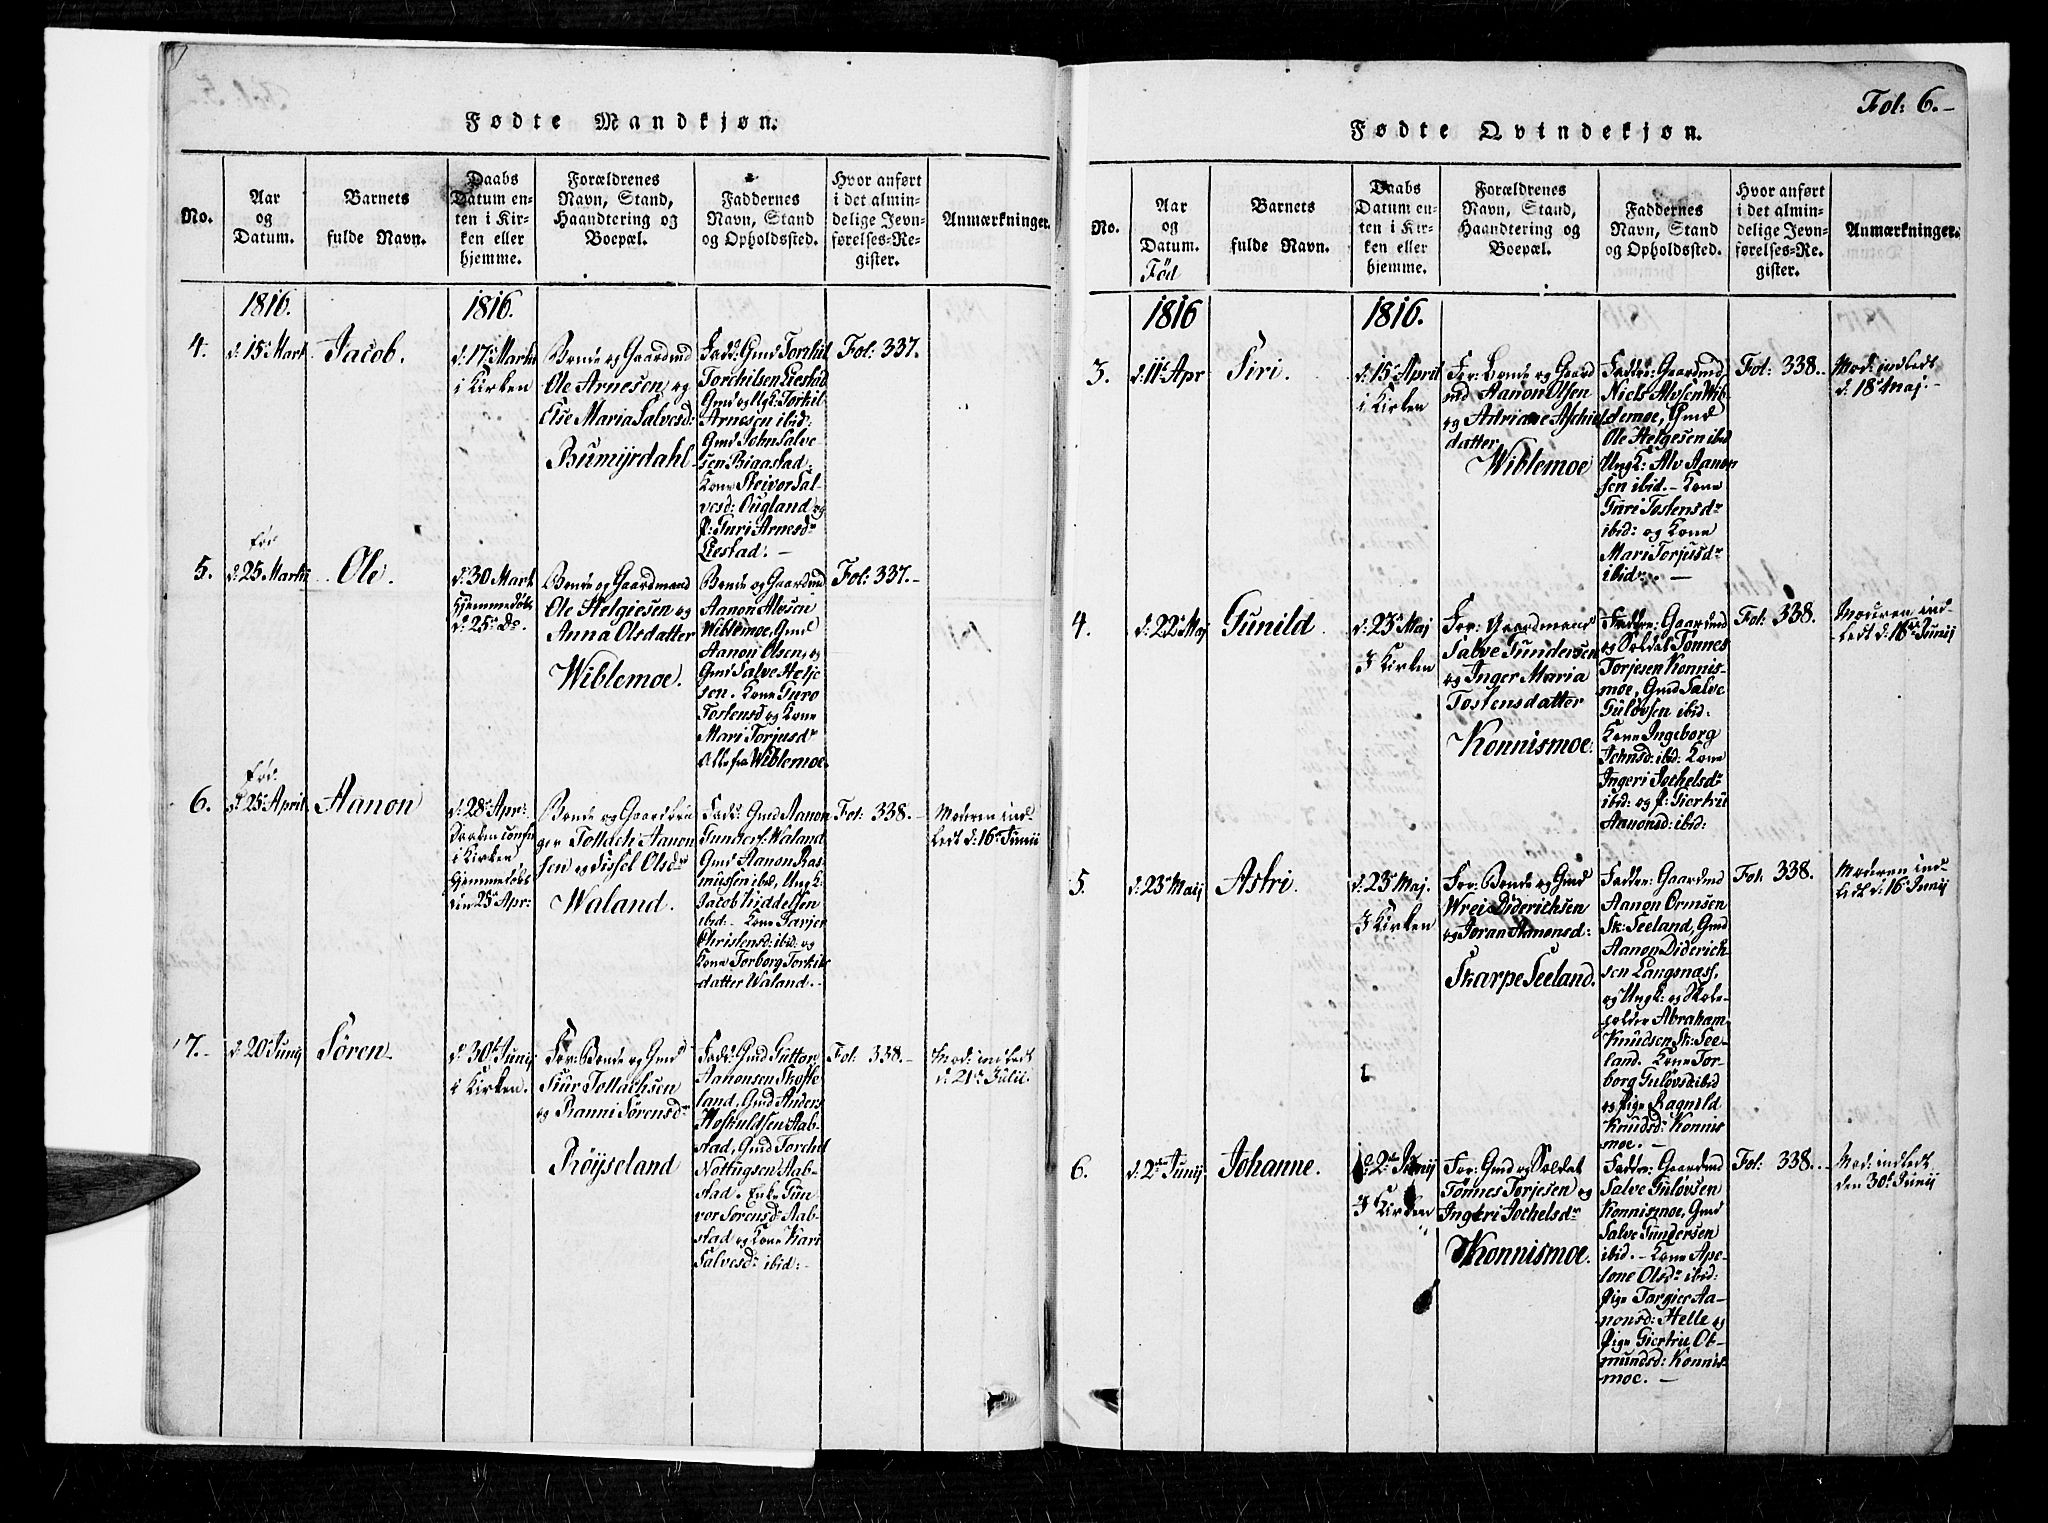 Fol: 6.-
Fødte Mandkjøn.
No.
Aar
og
Datum.
Barnets
fulde Navn.
Daabs
Datum en-
ten i Kir-
ken eller
hjemme.
Forældrenes
Navn, Stand,
Haandtering og
Boepæl.
Faddernes
Navn, Stand
og Opholdssted.
Hvor anført
i det almin-
delige Jevn-
førelses-Re-
gister.
Anmærkninger.
1816.
1816.
4.
d: 15 Mart
Jacob.
d: 17 Martii
i Kirken
Bonde og Gaardmd
Ole Arnesen og
Else Maria Salvesd:
Bumyrdahl
Fadd: Gmd Torchil
Torchilsen Liestad
Gmd og Ugk: Torkil
Arnesen ibid:
Gmd John Salve
sen Bigastad.
Kone Steivor Sal-
vesd: Ougland og
P: Turi Arnesdr
Liestad. —
Fol: 337.
5.
d: 25 Martii
Ole.
d: 30 Mart
Hjemmedøbt
d: 25 Do.
Bonde og Gaardmand
Ole Helgiesen og
Anna Olsdatter
Wiblemoe.
Bonde og Gaardmd
Aanon Alvsen
Wiblemoe, Gmd
Aanon Olsen, og
Gmd Salve Helje
sen. Kone Guro
Tostensd og Kone
Mari Torjusdr
Alle fra Wiblemoe.
Fol: 337.-
6.
d: 25 April
Aanon
d: 28 Apr:
i Kirken,
Hjemmedøbt
den 25 Apr:
Bonde og Gaardbru
ger Tollach Aanon
sen og Sissel Olsdr
Waland.
Fadd: Gmd Aanon
Gunders: Waland
Gmd Aanon Ras-
mussen ibid, Ungk:
Jacob Siddelsen
ibid:- Kone Tarjer
Christensd: ibid: og
Kone Torborg Torkils
datter Waland.-
Fol: 338.-
Moderen ind
ledt d: 16 Junii
7.-
d: 20 Junij
Sören
d: 30 Junij
i Kirken.
For: Bonde og Gmd
Siur Tollachsen
og Ranni Sörensdr
Röyseland
Fadd: Gmd Guttor
Aanonsen Skofte
land, Gmd Anders
Hoskuldsen Aab-
stad, Gmd Torchil
Nottugsen Aab-
stad. Enke Gun
vor Sorensd: Aab-
stad og Kone Kari
Salvesdr ibid:-
Fol: 338.-
Mod: indledt
d: 21 Julii.
Fødte Qvindekjøn.
No.
Aar
og
Datum.
Fød
Barnets
fulde Navn.
Daabs
Datum en-
ten i Kir-
ken eller
hjemme.
Forældrenes
Navn, Stand,
Haandtering og
Boepæl.
Faddernes
Navn, Stand
og Opholdssted.
Hvor anført
i det almin-
delige Jevn-
førelses-Re-
gister.
Anmærkninger.
1816
1816.
3.
d: 11 Apr
Siri.
d: 15 April
i Kirken
For: Bonde og Gaard
md Aanon Olsen
og Adriane Aschiels
datter
Wiblemoe
Fadder: Gaardmd
Niels Alvsen Wib
lemoe, Gmd
Ole Helgesen ibid
Ungk: Alv Aanon
sen ibid.- Kone
Guri Tostensdr
ibid: og Kone
Mari Torjusdr
ibid. —
Fol: 338.-
Mod: indledt
d: 18 Maj.-
4.
d: 22 Maj
Gunild
d: 23 Maj
I Kirken
For: Gaardmand
Salve Gundersen
og Inger Maria
Tostensdatter
Konnismoe.
Fadder: Gaardmd
og Soldat Tønnes
Torjesen Konnis-
moe, Gmd Salve
Gulövsen ibid:
Kone Ingeborg
Johnsd: ibid: Kone
Ingeri Jochelsdr
ibid: og P: Giertru
Aanonsd: ibid:
Fol: 338.
Moderen ind-
ledt d: 16 Junij
5.
d: 23 Maij
Astri.
d: 23 Maj.
I Kirken
For: Bonde og Gmd
Wrei Diderichsen
og Joran Aanonsd:
Skarpe Seeland.
Fadder: Gaardmd
Aanon Ormsen
Sk: Seeland, Gmd
Aanon Diderich-
sen Langenæss,
og Ungk: og Skole-
holder Abraham
Knudsen Sk: See-
land. Kone Tor-
borg Gulövsd ibid
og Pige Ragnild
Knudsd: Konnis
moe. —
Fol: 338.
Moderen ind-
ledt d: 16 Junij
6.
d: 2 Junij
Johanne.
d: 2 Junij
I Kirken
For: Gmd og Soldat
Tönnes Torjesen og
Ingeri Jochelsdr
Konnismoe.
Fadder: Gaardmd
Salve Gulövsen
Konnismoe, Gmd
Salve Gundersen
ibid.- Kone Ape-
lone Olsdr ibid:
Pige Torgier Aa-
nonsd: Helle og
Pige Giertru Os-
mundsd: Konnis-
moe. —
Fol: 338.-
Mod: indledt
den 30 Junij